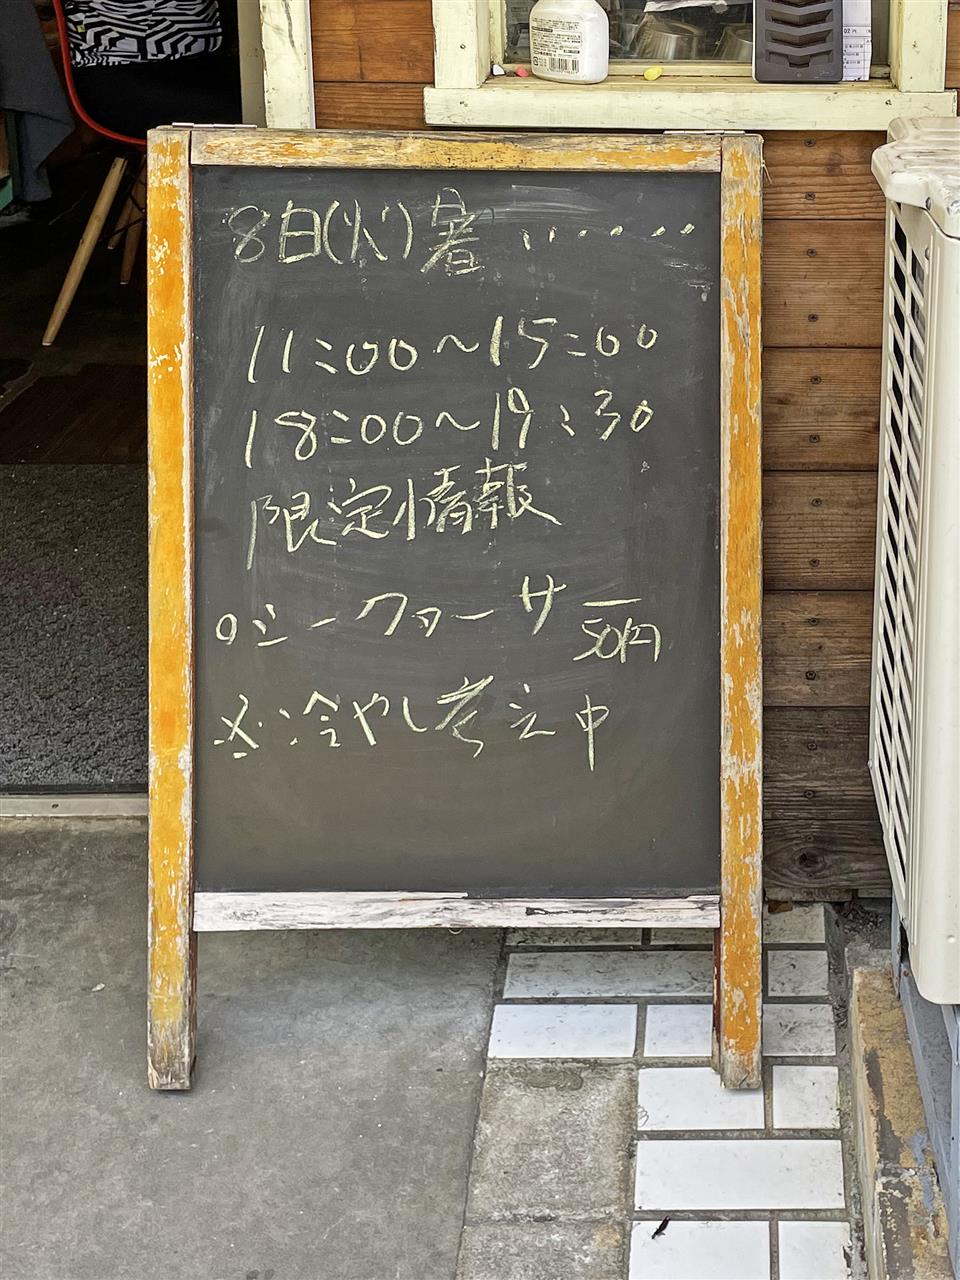 8日(火)暑い・・・・・
11:00〜15:00
18:00〜19:30
限定情報
○シークァーサー
50円
※:冷やし考え中